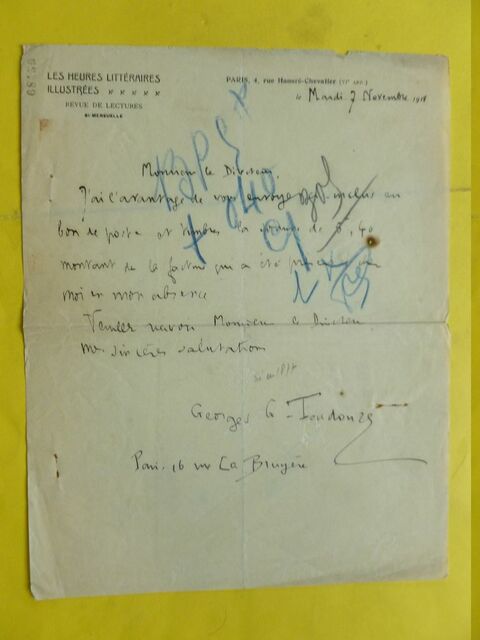 LES HEURES LITTÉRAIRES
ILLUSTRÉES
REVUE DE LECTURES
BI-MENSUELLE
PARIS, 4, rue Hautefeuille (VIe ARR.)
le Mardi 7 Novembre 191
Monsieur le Directeur,
J'ai l'avantage de vous envoyer inclus en
bon de poste et timbres la somme de 40
montant de la facture qui a été présentée
moi en mon absence
Veuillez recevoir Monsieur le Directeur
mes sincères salutations
Georges G. Toudouze
Paris. 16 rue La Bruyère